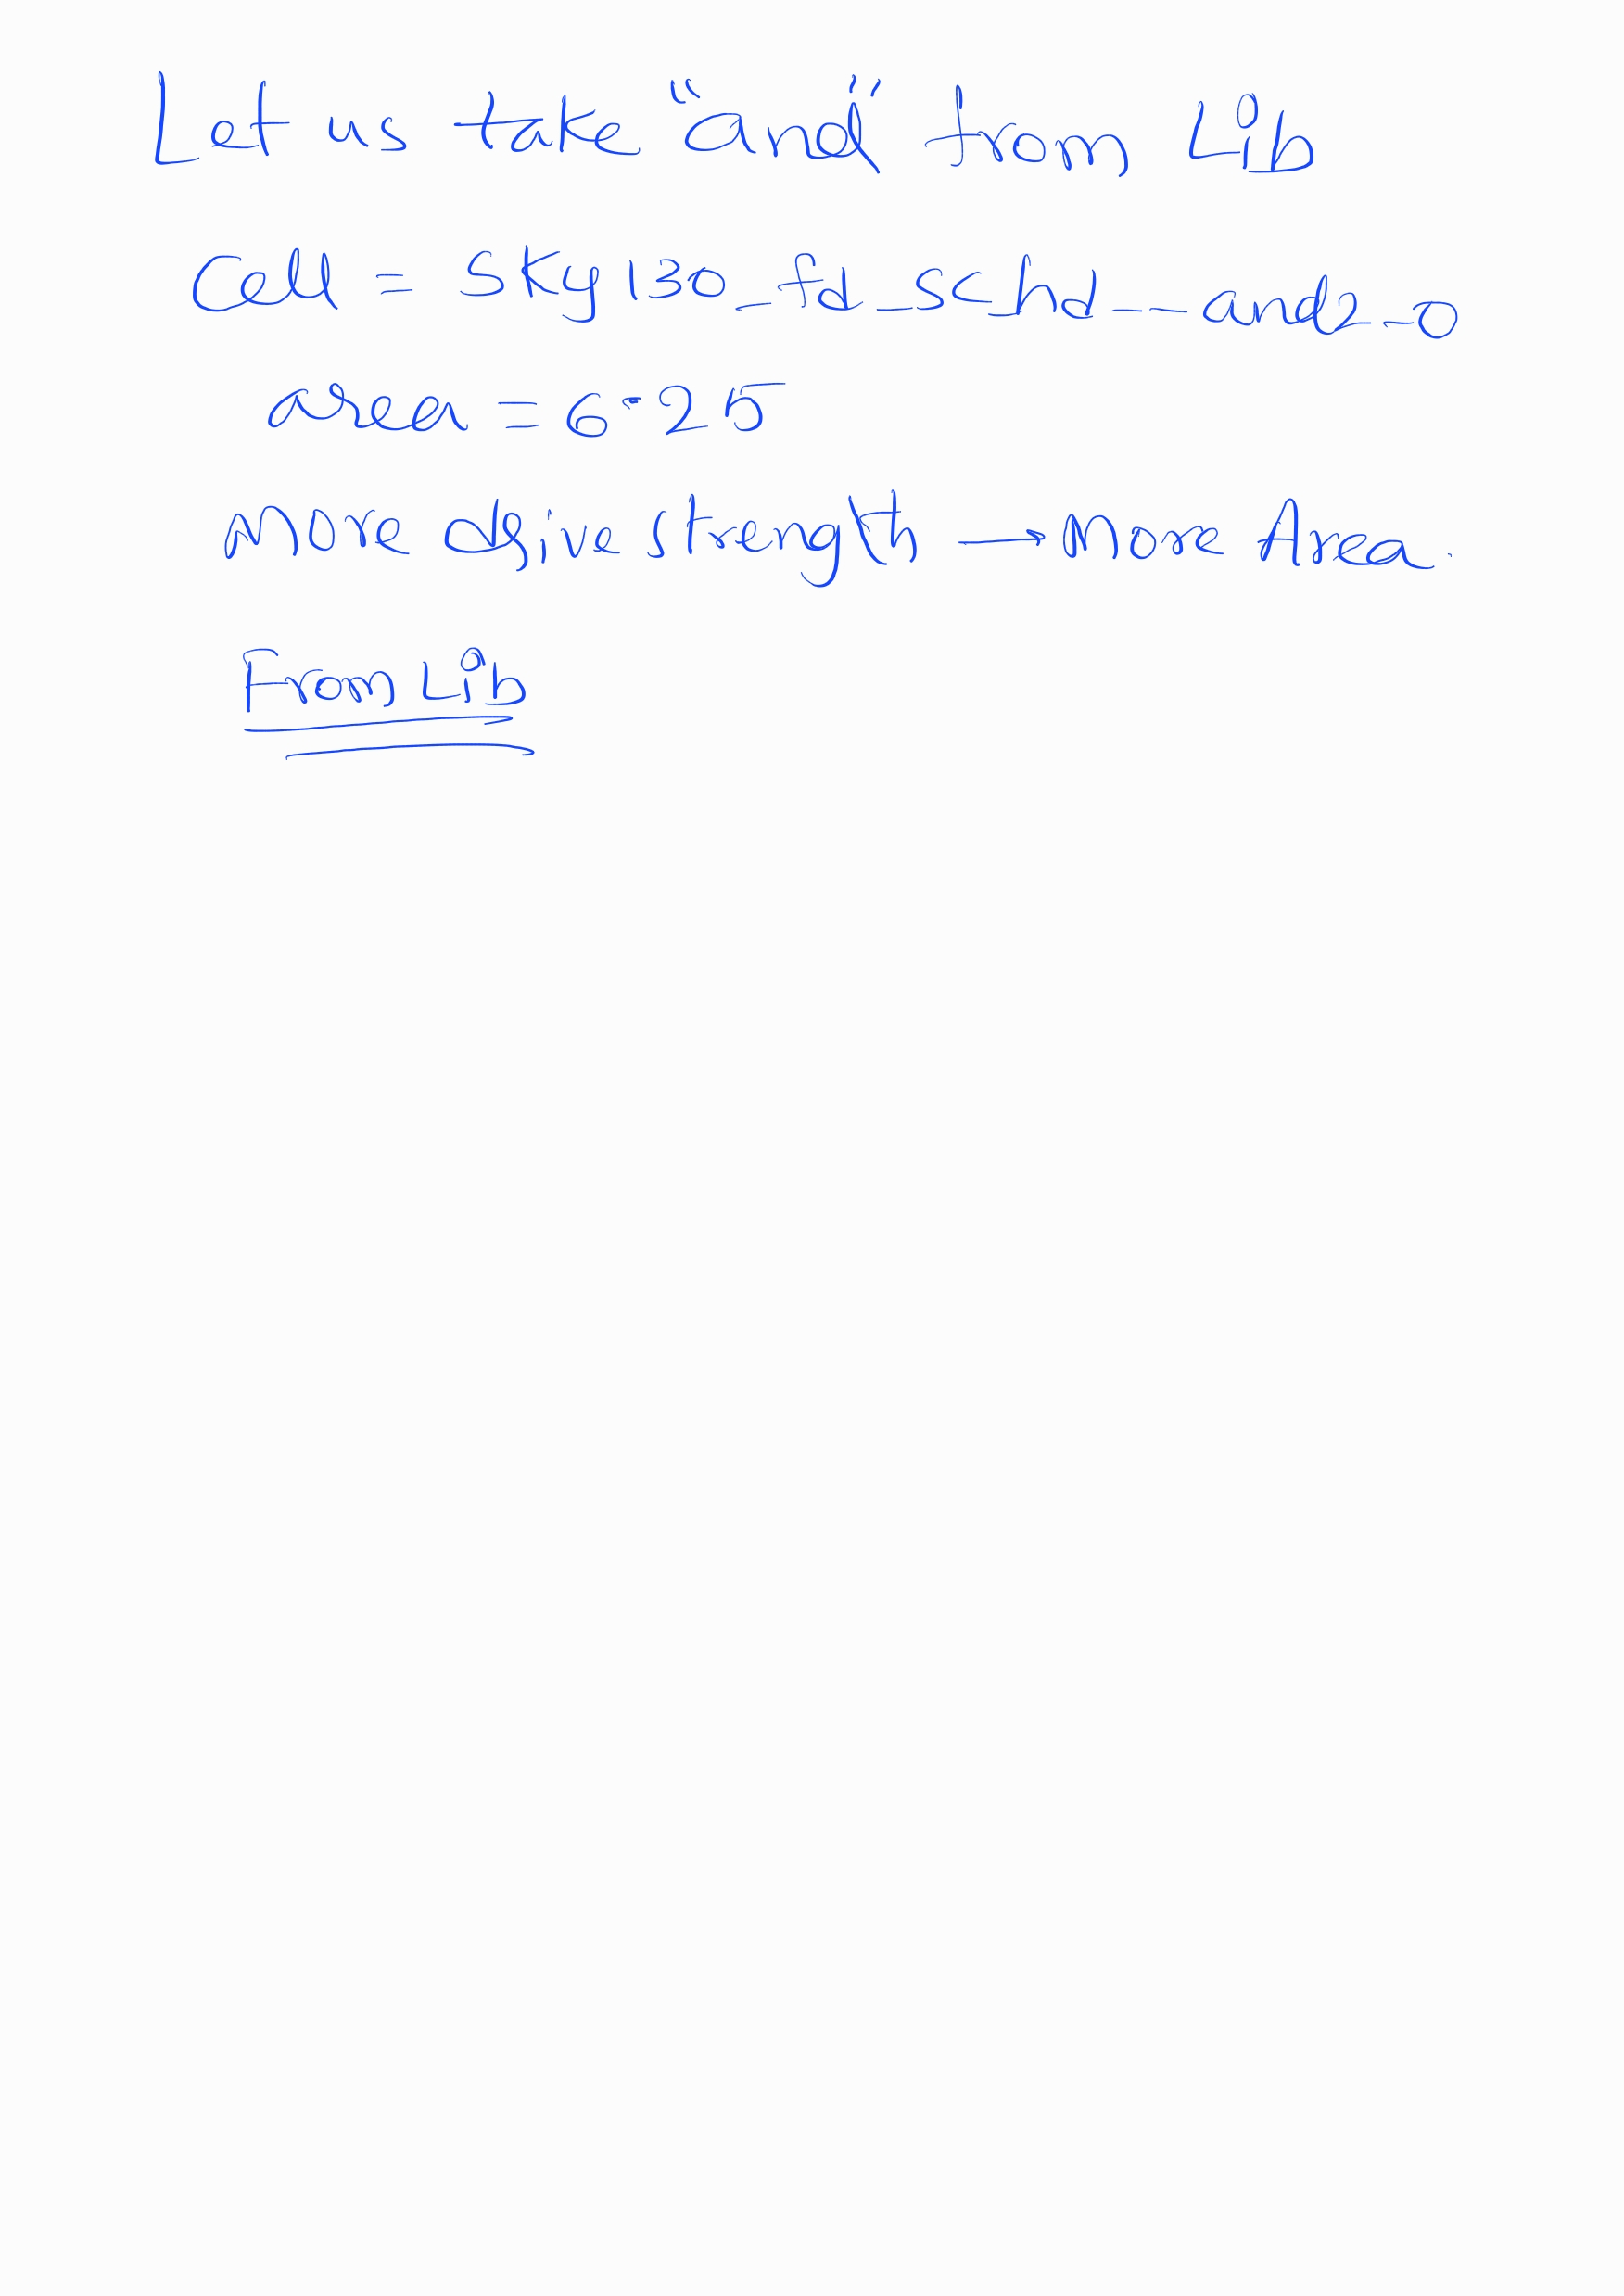 Let us take "and" from Lib
Cell = sky130_fd_sc_hd__and2_0
area = 6.25
More drive strength → More Area.
From Lib